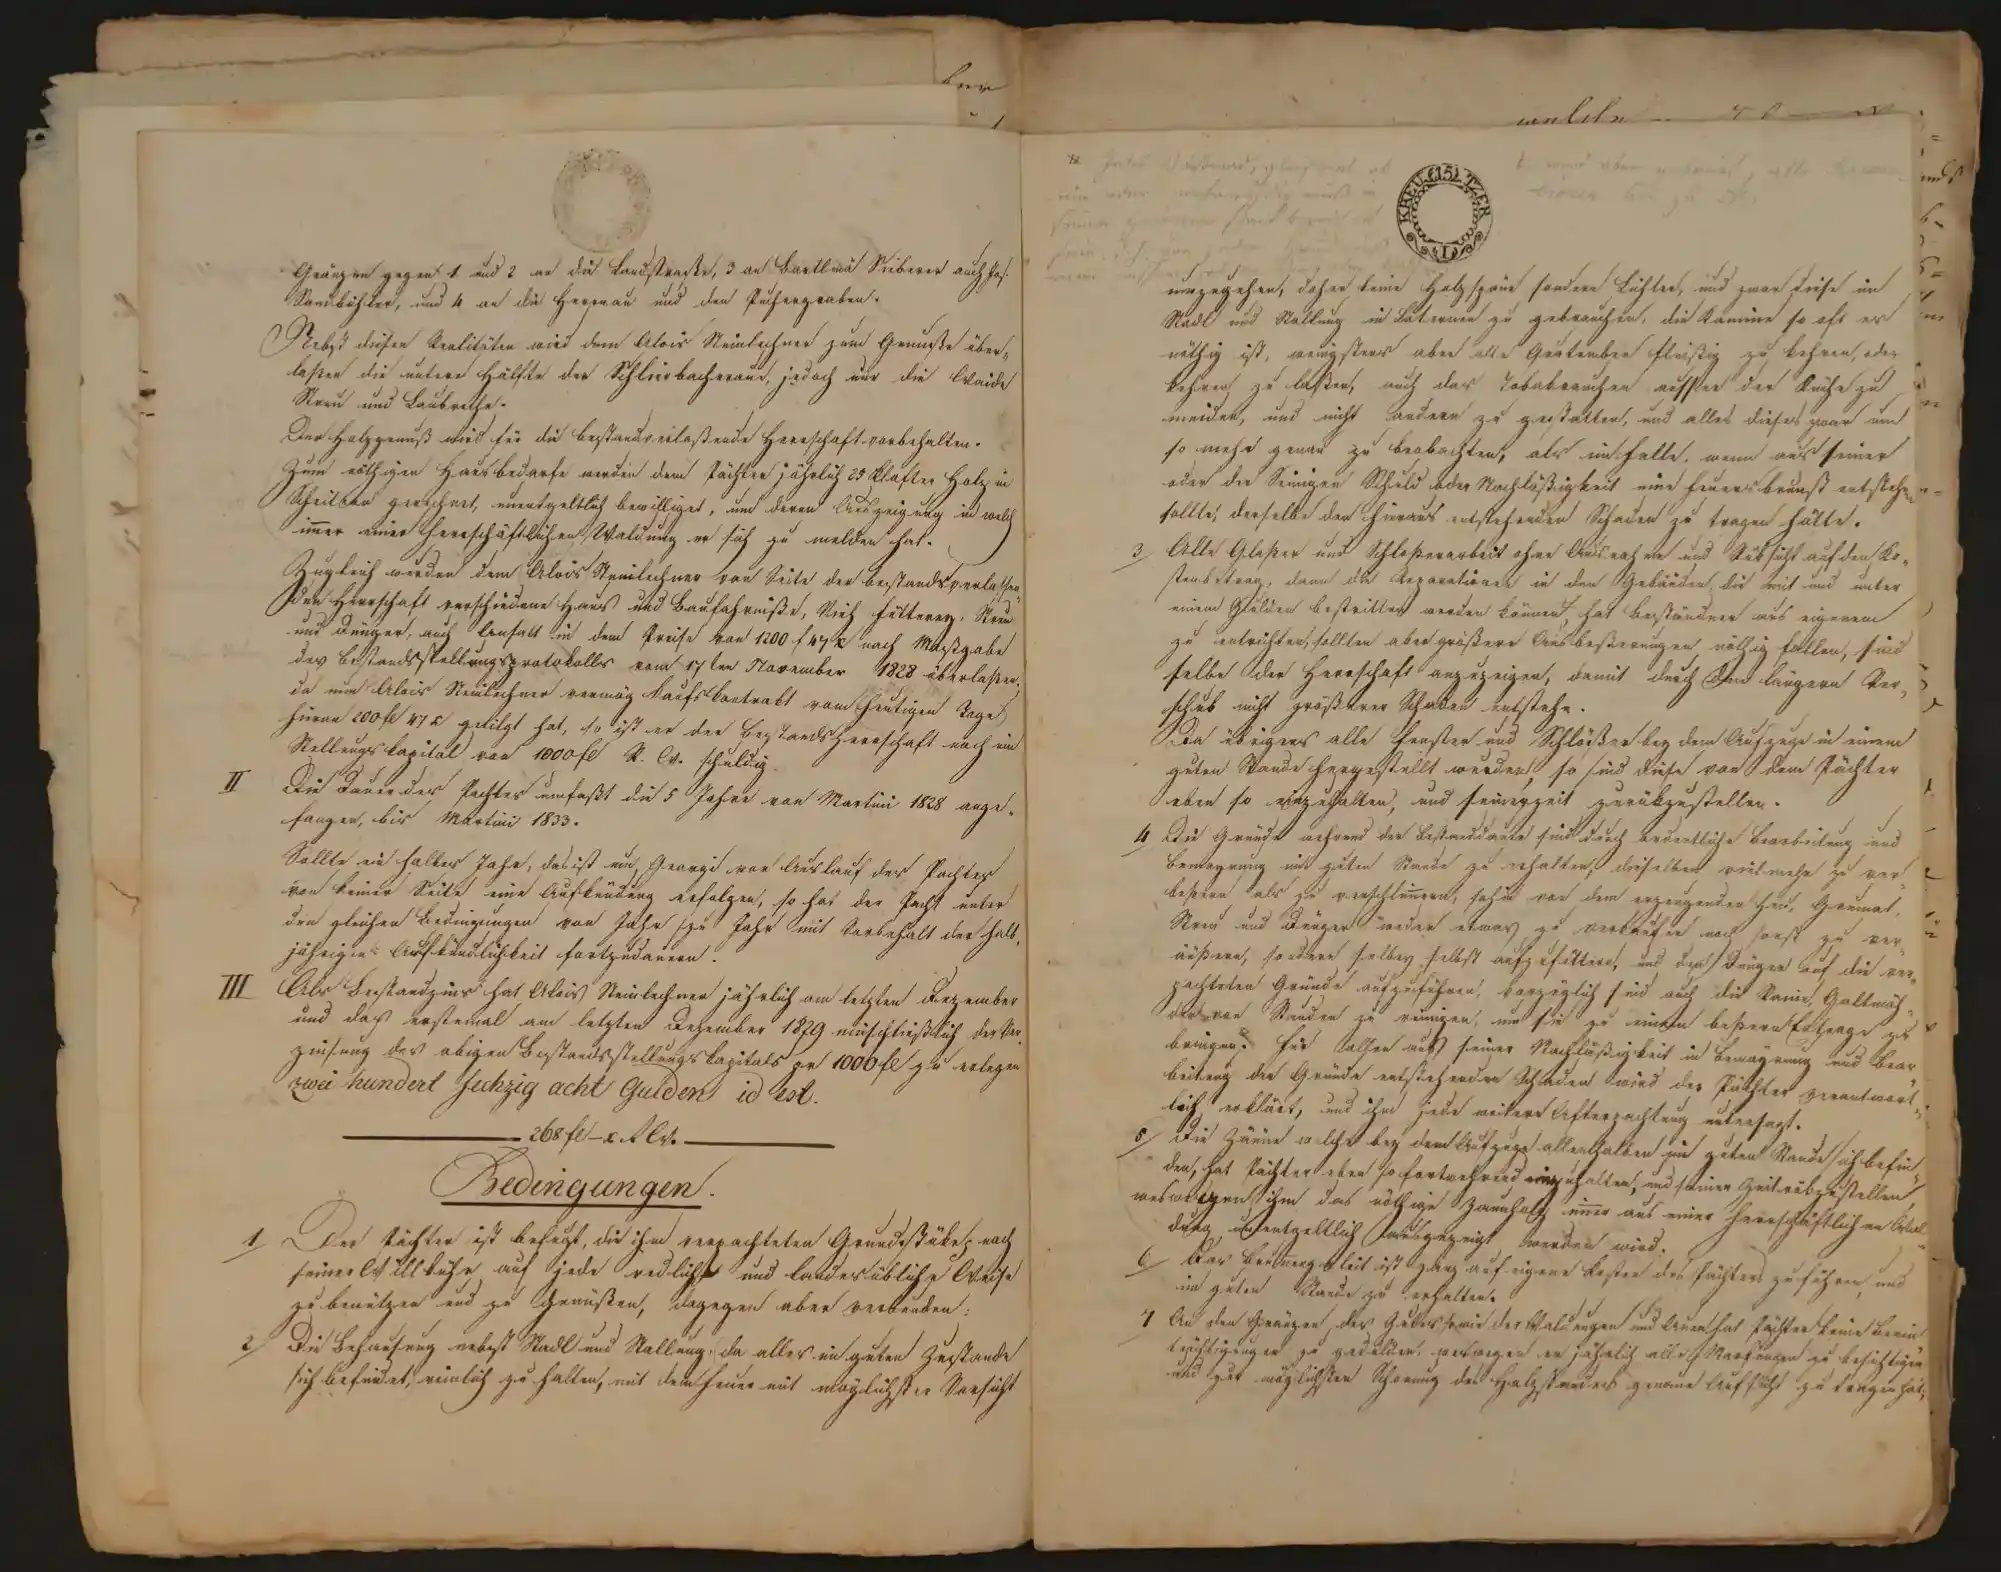 Gränzen gegen 1 und 2 an die Landstrasse, 3 an Bartlmä Sieberer auch Jos:
Sandbichler, und 4 an die Herrnau und den Puchergraben.
Nebst diesen Realitäten wird dem Alois Steinlechner zum Genuße über-
laßen die untere Hälfte der Schlierbacheraue, jedoch nur die Waide
Streu und Laubrechte.
Der Holzgenuß wird für die bestandverlaßende Herrschaft vorbehalten.
Zum nöthigen Hausbedarfe werden dem Pächter jährlich 25 Klafter Holz in
Scheitern gerechnet, unentgeltlich bewilliget, um deren Auszeigung in welch
immer einer herrschäftlichen Waldung er sich zu melden hat.
Zugleich wurden dem Alois Steinlechner von Seite der bestandsverlaßen-
den Herrschaft verschiedene Haus und Baufahrniße, Vieh, Fütterey, Streu
und Dünger, auch Ansaat in dem Preise von 1200 f 47 x nach Maßgabe
des Bestandsstellungsprotokolls vom 17ten November 1828 überlaßen;
da nun Alois Steinlechner vermög Kaufskontrakt vom heutigen Tage
hievon 200 fl 47 x getilgt hat, so ist er der Bestandsherrschaft noch ein
Stellungskapital von 1000 fl R. W. schuldig.
II Die Dauer des Pachtes umfaßt die 5 Jahre von Martini 1828 ange-
fangen, bis Martini 1833.
Sollte ein halbes Jahr, das ist um Georgi vor Auslauf des Pachtes
von keiner Seite eine Aufkündung erfolgen, so hat der Pacht unter
den gleichen Bedingungen von Jahr zu Jahr mit Vorbehalt der halb-
jährigen Aufkündlichkeit fortzudauern.
III Als Bestandzins hat Alois Steinlechner jährlich am letzten Dezember
und das erstemal am letzten Dezember 1829 einschließlich der Ver-
zinsung des obigen Bestandsstellungskapitals pr 1000 fl zu erlegen
zwei hundert sechzig acht Gulden id est.
268 fl – x R W.
Bedingungen.
1/ Der Pächter ist befugt, die ihm verpachteten Grundstücke nach
seiner Willkühr auf jede redliche und landesübliche Weise
zu benützen und zu genüßen, dagegen aber verbunden:
2/ Die Behausung nebst Stadl und Stallung, da alles im guten Zustande
sich befindet, reinlich zu halten, mit dem Feuer mit möglichster Vorsicht
welche
KREU(15)TZER
umzugehen, daher keine Holzspäne sondern Lichter, und zwar diese im
Stadl und Stallung in Laternen zu gebrauchen, die Kamine so oft es
nöthig ist, wenigstens aber alle Quatember fleißig zu kehren, oder
kehren zu laßen, auch das Tobakrauchen ausser der Küche zu
meiden, und nicht andern zu gestatten, und alles dieses zwar um
so mehr genau zu beobachten, als im Falle, wenn aus seiner
oder der Seinigen Schuld oder Nachläßigkeit eine Feuersbrunst entstehen
sollte, derselbe den hieraus entstehenden Schaden zu tragen hätte.
3/ Alle Glaßer und Schloßerarbeit ohne Ausnahme und Rücksicht auf den Ko-
stenbetrag, dann die Reparationen in den Gebäuden, die mit und unter
einem Gulden bestritten werden können, hat Beständner aus eigenem
zu entrichten, sollten aber größere Ausbeßerungen nöthig fallen, sind
selbe der Herrschaft anzuzeigen, damit durch den längern Ver-
schub nicht größerer Schaden entstehe.
Da übrigens alle Fenster und Schlößer bey dem Aufzuge in einem
guten Stande hergestellt wurden, so sind diese von dem Pächter
eben so einzuhalten, und seinerzeit zurückzustellen.
4/ Die Gründe während der Bestanddauer sind durch ordentliche Bearbeitung und
Bemayrung im guten Stande zu erhalten, dieselben vielmehr zu ver-
beßern als zu verschlimmern, sohin von dem erzeugenden Heu, Groumat,
Streu und Dünger weder etwas zu verkaufen noch sonst zu ver-
äußern, sondern selbes selbst aufzufüttern, und den Dünger auf die ver-
pachteten Gründe aufzuführen, vorzüglich sind auch die Raine, Galtmäh-
der von Stauden zu reinigen, um sie zu einem beßern Ertrage zu
bringen. Für allen aus seiner Nachläßigkeit in Bemayrung und Bear-
beitung der Gründe entstehenden Schaden wird der Pächter verantwort-
lich erklärt, und ihm jede weitere Afterpachtung untersagt.
5/ Die Zäune welche bey dem Aufzuge allenthalben im guten Stande sich befin-
den, hat Pächter eben so fortwehrend einzuhalten, und seiner Zeit rückzustellen
weswegen ihm das nöthige Zaunholz immer aus einer herrschäftlichen Wal-
dung unentgeltlich ausgezeigt werden wird.
6/ Das Brunnengeleit ist ganz auf eigene Kosten des Pächters zu führen, und
im guten Stande zu erhalten.
7 An den Gränzen des Gutes sowie der Waldungen und Auen hat Pächter keine Beein-
trächtigungen zu gedulden, weswegen er jährlich alle Marchungen zu besichtigen
und zur möglichsten Schonung des Holzstandes genaue Aufsicht zu tragen hat;